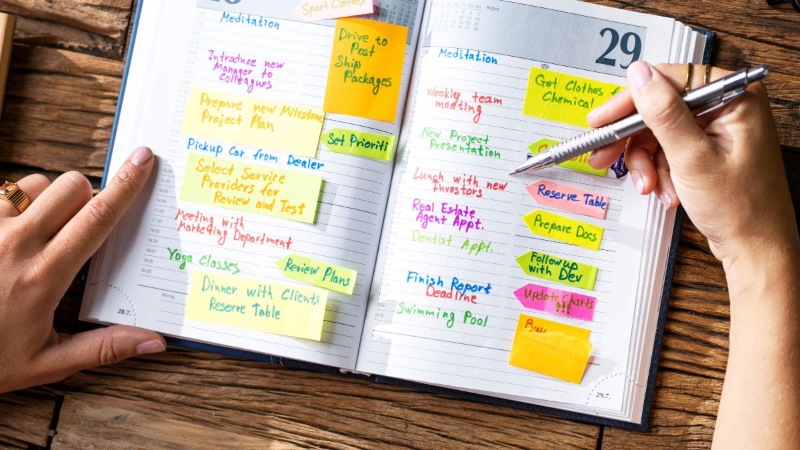 Sport Clothes
Meditation
Drive to
Post
Ship
Packages
Introduce new
Manager to
Colleagues
Prepare new Milestone
Project Plan
Set Prioriti
Pickup Car from Dealer
Select Service
Providers for
Review and Test
Meeting with
Marketing Department
Yoga Classes
Review Plans
Dinner with Clients
Reserve Table
28.7.
29
Meditation
Get Clothes f
Chemical
Weekly team
meeting
New Project
Presentation
Lunch with new
Investors
Reserve Table
Real Estate
Agent Appt.
Prepare Docs
Dentist Appt.
Followup
with Dev
Finish Report
Deadline
Update Charts
Swimming Pool
29.7.